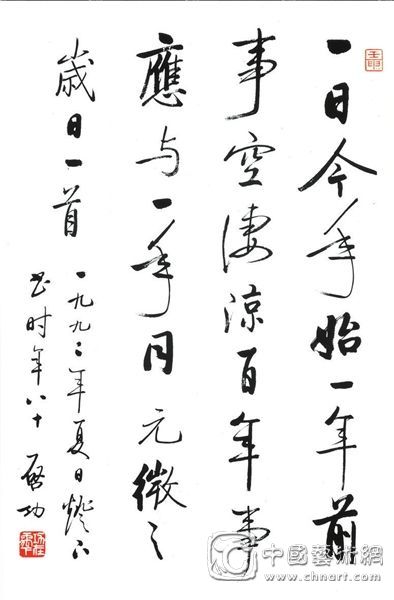 一日今年始一年前
事空凄涼百年事
應与一年同元微之
歲日一首
一九九二年夏日燈下
书时年八十 启功
中國藝術網
www.chnart.com